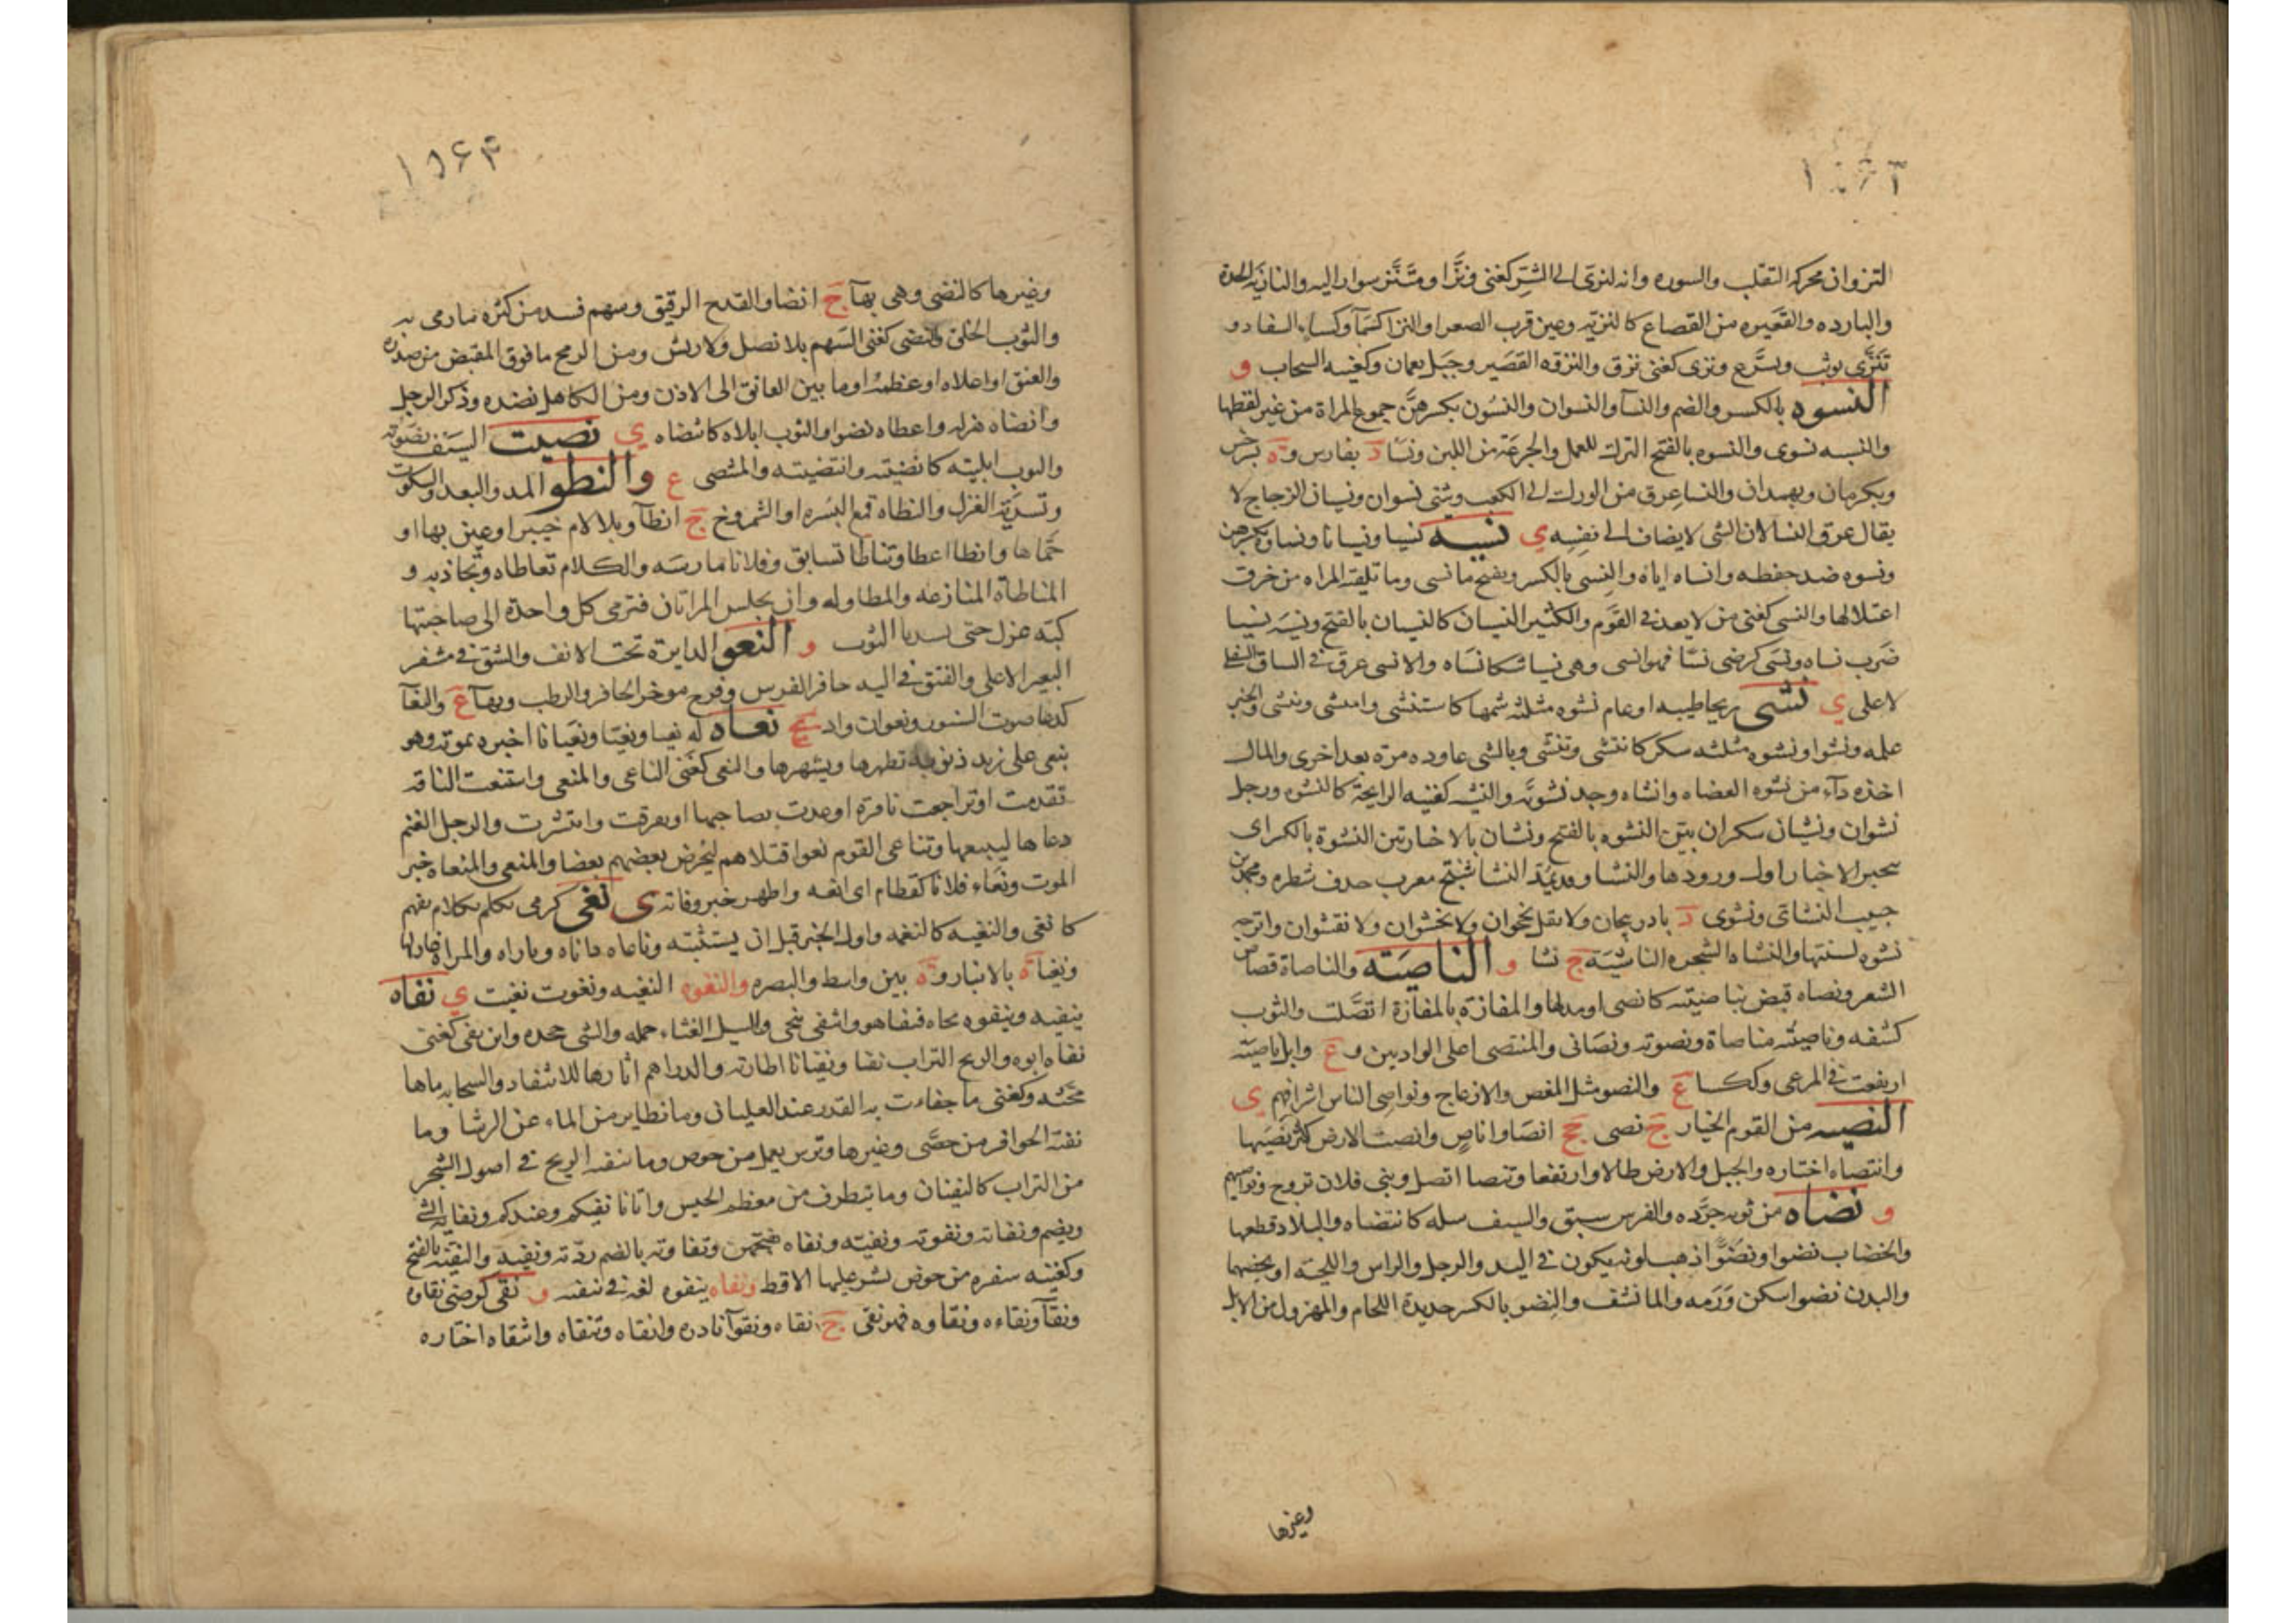 ١٥٦٣
النزوان محركه التقلب والسوره وانه لنزى الى الشر كغنى ونزا ومتنز سوار اليه والنازيه الحدة
والبارده والقعيره من القصاع كالنزيه وعين قرب الصفراء والنزا كسماء وكساء السفاد و
تنزى توثب وتسرع ونزى كغنى نزق والنزقه القصير وجبل بعمان وكغنيه السحاب و
النسوه بالكسر والضم والنسآ والنسوان والنسون بكسرهن جموع المراة من غير لفظها
والنسبه نسوى والنسوه بالفتح الترك للعمل والجرعة من اللبن ونسا د بفارس وة بسرخس
وبكرمان وبهمدان والنسا عرق من الورك الى الكعب ويثنى نسوان ونسيان الزجاج لا
يقال عرق النسا لان الشى لا يضاف الى نفسه ي نسيه نسيا ونسيانا ونساوة بكسرهن
ونسوه ضد حفظه وانساه اياه والنسى بالكسر ويفتح ما نسى وما تلقيه المراه من خرق
اعتلالها والنسى كغنى من لا يعد في القوم والكثير النسيان كالنسيان بالفتح ونسيه نسيا
ضرب نساه ونسى كرضى نسا فهو انسى وهى نسيا شكا نساه والانسى عرق في الساق السفلى
لاعلى ي نشى ريحا طيبه او عام نشوه مثلثه شمها كاستنشى وانتشى ونشى والخبر
علمه ونشوا ونشوه مثلثه سكر كانتشى وتنشى وبالشى عاوده مرة بعد اخرى والمال
اخذه دآء من نشوه العضاه وانشاه وجد نشوته والنشيه كغنيه الرايحة كالنشوه ورجل
نشوان ونشيان سكران بين النشوه بالفتح ونشيان بالاخبار بين النشوة بالكسر اى
يتخبر الاخبار اول ورودها والنشا وقد يمد النشاشتج معرب حذف شطره ومحمد بن
حبيب النشائى ونشوى د باذربيجان ولا يقل نخجوان ولا نخشوان ولا نقشوان وانزجه
نشوه لسنتها والنشاه الشجره النانشيه ج نشا و الناصيته والناصاة قصاص
الشعر ونصاه قبض بناصيته كانصى او مدها والمفازة بالمفازة اتصلت والثوب
كشفه وناصيته مناصاة ونصوته ونصانى والمنتصى اعلى الواديين و ع وابل ناصيته
ارتفعت في المرعى وككسا ع والنصو مثل المغص والانزعاج ونواصى الناس اشرافهم ي
النصيه من القوم الخيار ج نصى جج انصاوا ناص وانصت الارض كثر نصيها
وانتصاه اختاره والجبل والارض طالا وارتفعا وتنصا اتصل وبنى فلان تزوج ونواصيهم
و نضاه من ثوبه جرده والفرس سبق والسيف سله كانتضاه والبلاد قطعها
والخضاب نضوا ونضوا ذهب لونه يكون في اليد والرجل والراس واللحيه او يخصهما
والبدن نضوا سكن ورمه والما نشف والنضو بالكسر حديدة اللجام والمهزول من الابل
وغيرها
١٥٦٤
وغيرها كالنضى وهى بهآ ج انضا والقدح الرقيق وسهم فسد من كثره ما رمى به
والثوب الخلق والنضى كغنى السهم بلا نصل ولا ريش ومن الرمح ما فوق المقبض من صدره
والعنق او اعلاه او عظمه او ما بين العاتق الى الاذن ومن الكاهل نضده وذكر الرجل
وانضاه هزله واعطاه نضوا والثوب ابلاه كانتضاه ي نضيت السيف نضوته
والثوب ابليته كانضيته وانتضيته والمنتضى ع والنطو المد والبعد والسكوت
وتسدية الغزل والنطاة قمع البسره او الشمروخ ج انطآ وبلا لام خيبر او عين بها او
حماها وانطا اعطا وتناطا تسابق وفلانا مارسه والكلام تعاطاه وتجاذبه و
المناطاة المنازعه والمطاوله وان تجلس المراتان فترمى كل واحدة الى صاحبتها
كبة غزل حتى تسديا الثوب و النعو الدايرة تحت الانف والشق في مشفر
البعير الاعلى والفتق في اليه حافر الفرس وفرج موخر الحافر والرطب وبهآ ع والنعآ
كدعا صوت السنور ونعوان واد ي نعاه له نعيا ونعيا ونعيانا اخبره بموته وهو
ينعى على زيد ذنوبه يظهرها ويشهرها والنعى كغنى الناعى والمنعى واستنعت الناقه
تقدمت او تراجعت نافرة او عدت بصاحبها او تفرقت وانتشرت والرجل الغنم
دعاها ليبيعها وتناعى القوم نعوا قتلاهم ليحرض بعضهم بعضا والمنعى والمنعاه خبر
الموت ونعاء فلانا كقطام اى انعه واظهر خبر وفاته ي نغى كرمى تكلم بكلام يفهم
كانغى والنغيه كالنغمه واول الخبر قبل ان يستثبته وناغاه داناه وباراه والمراة غازلها
ونغياة بالانبار وة بين واسط والبصره والنغوه النغيه ونغوت نغيت ي نفاه
ينفيه وينفوه نحاه فنفا هو وانتفى تنحى والسيل الغثاء حمله والشى جحده وابن نفى كغنى
نفاه ابوه والريح التراب نفيا ونفيانا اطارته والدراهم اثارها للانتقاد والسحابه ماها
مجته وكغنى ما جفاءت به القدر عند الغليان وما تطاير من الماء عن الرشا وما
نفته الحوافر من حصى وغيرها وترس يعمل من خوص وما تنفيه الريح في اصول الشجر
من التراب كالنفيان وما يتطرف من معظم الجيش واتانا نفيكم وعيدكم ونفاية الشى
ويضم ونفاته ونفوته ونفيته ونفاه بفتحهن ونفاوته بالضم رديه وبقيته والنفيه بالفتح
وكغنيه سفره من خوص يشر عليها الاقط ونفاه ينفوه لغة في ينفيه و نقى كرضى نقاوة
ونقآ ونقاءه ونقاوه فهو نقى ج نقاء ونقوآ نادره وانقاه وتنقاه وانتقاه اختاره